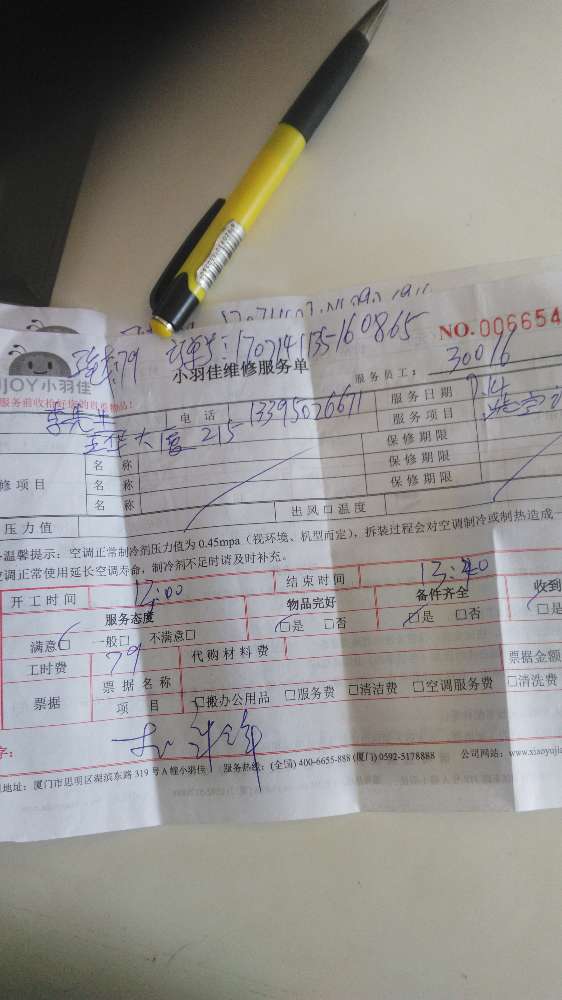 79 170714135-160865
NO.006654
JOY小羽佳
小羽佳维修服务单
服务员工：30016
服务前收拾好您的贵重物品！
李先生 电 话 13395026611 服务日期 7.14
大厦 215 服务项目
名 称 保修期限
修项目 名 称 保修期限
名 称 保修期限
压力值 出风口温度
温馨提示：空调正常制冷剂压力值为 0.45mpa（视环境、机型而定），拆装过程会对空调制冷或制热造成一
空调正常使用延长空调寿命，制冷剂不足时请及时补充。
开工时间 12:00 结束时间 13:40
服务态度 物品完好 备件齐全 收到
满意□ 一般□ 不满意□ □是 □否 □是 □否 □是
工时费 79 代购材料费 票据金额
票据 票 据 名 称
项 目 □搬办公用品 □服务费 □清洁费 □空调服务费 □清洗费
字：
地址：厦门市思明区湖滨东路 319 号 A 幢小羽佳 服务热线：(全国) 400-6655-888 (厦门) 0592-5178888 公司网站：www.xiaoyujia